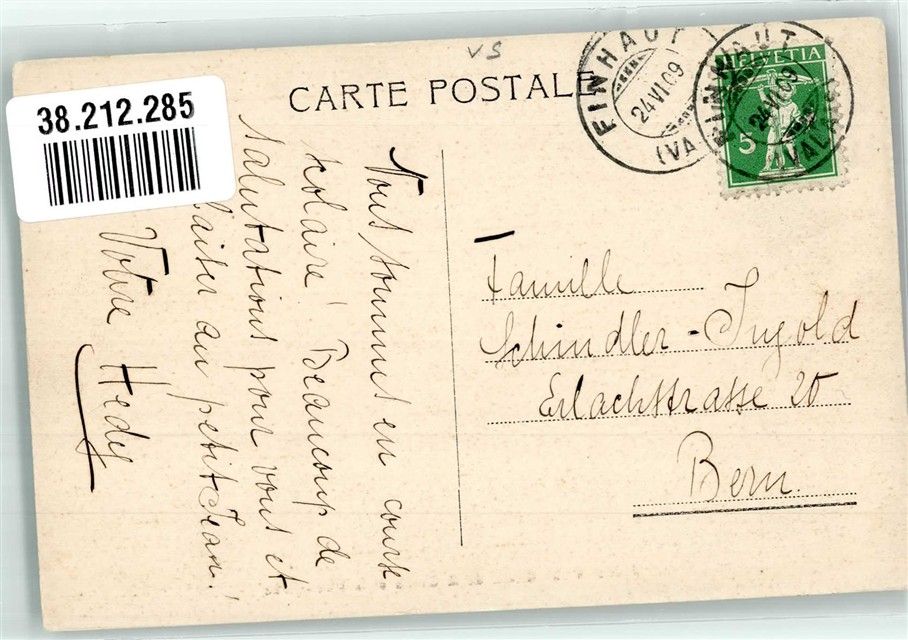 VS
CARTE POSTALE
38.212.285
FINHAUT
24 VI 09
(VA
FINHAUT
24 VI 09
(VALAIS)
HELVETIA
5
Nous sommes en course
scolaire! Beaucoup de
salutations pour vous et
baiser au petit Jean!
Votre Hedy
Famille
Schindler-Ingold
Erlachstrasse 20
Bern.